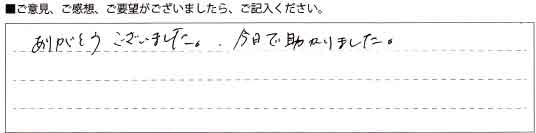 ■ご意見、ご感想、ご要望がございましたら、ご記入ください。
ありがとうございました。今日で助かりました。